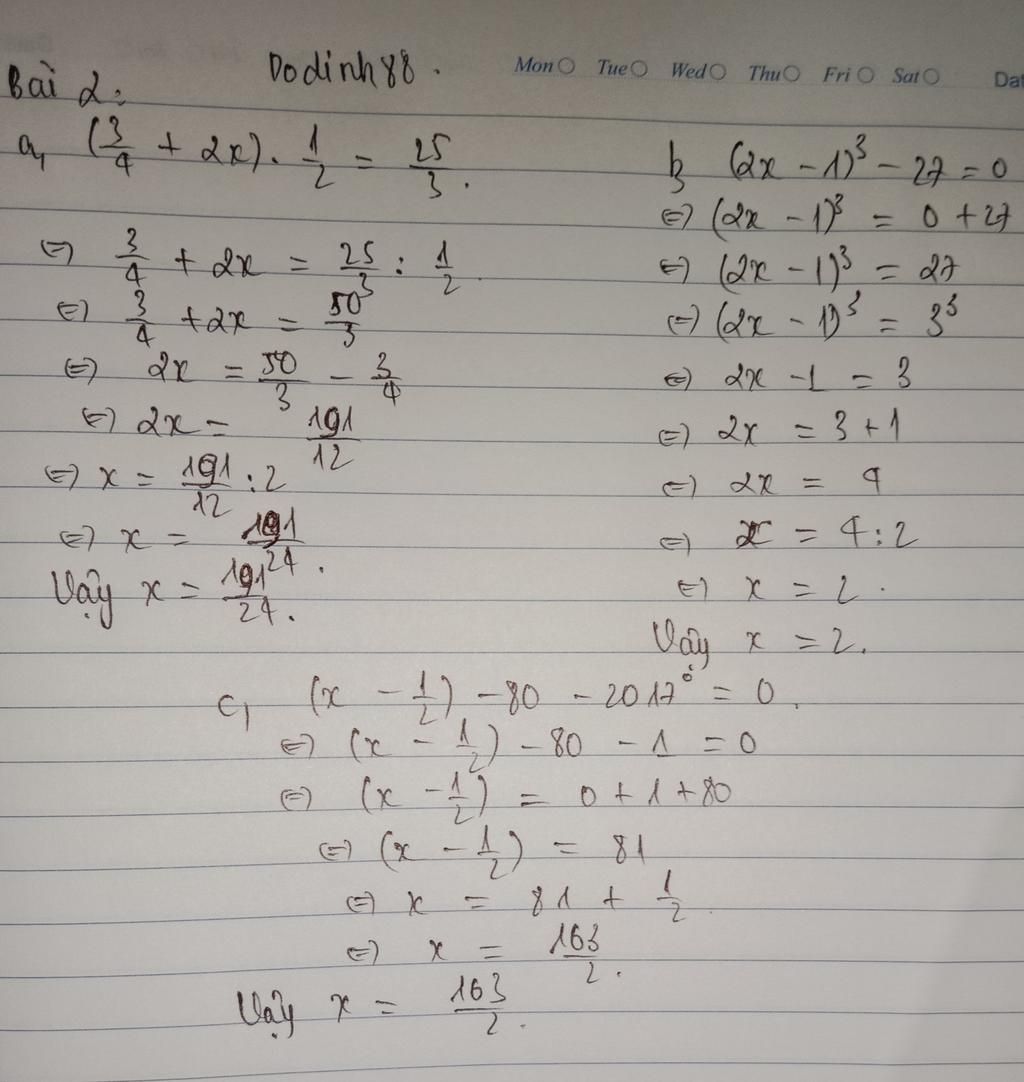 Mon Tue Wed Thu Fri Sat Dat
Dodinh88.
Bài 2:
a, (3/4 + 2x) . 1/2 = 25/3.
⇔ 3/4 + 2x = 25/3 : 1/2
⇔ 3/4 + 2x = 50/3
⇔ 2x = 50/3 - 3/4
⇔ 2x = 191/12
⇔ x = 191/12 : 2
⇔ x = 191/24.
Vậy x = 191/24.
b, (2x - 1)³ - 27 = 0
⇔ (2x - 1)³ = 0 + 27
⇔ (2x - 1)³ = 27
⇔ (2x - 1)³ = 3³
⇔ 2x - 1 = 3
⇔ 2x = 3 + 1
⇔ 2x = 4
⇔ x = 4 : 2
⇔ x = 2.
Vậy x = 2.
c, (x - 1/2) - 80 - 2017⁰ = 0.
⇔ (x - 1/2) - 80 - 1 = 0
⇔ (x - 1/2) = 0 + 1 + 80
⇔ (x - 1/2) = 81
⇔ x = 81 + 1/2.
⇔ x = 163/2.
Vậy x = 163/2.